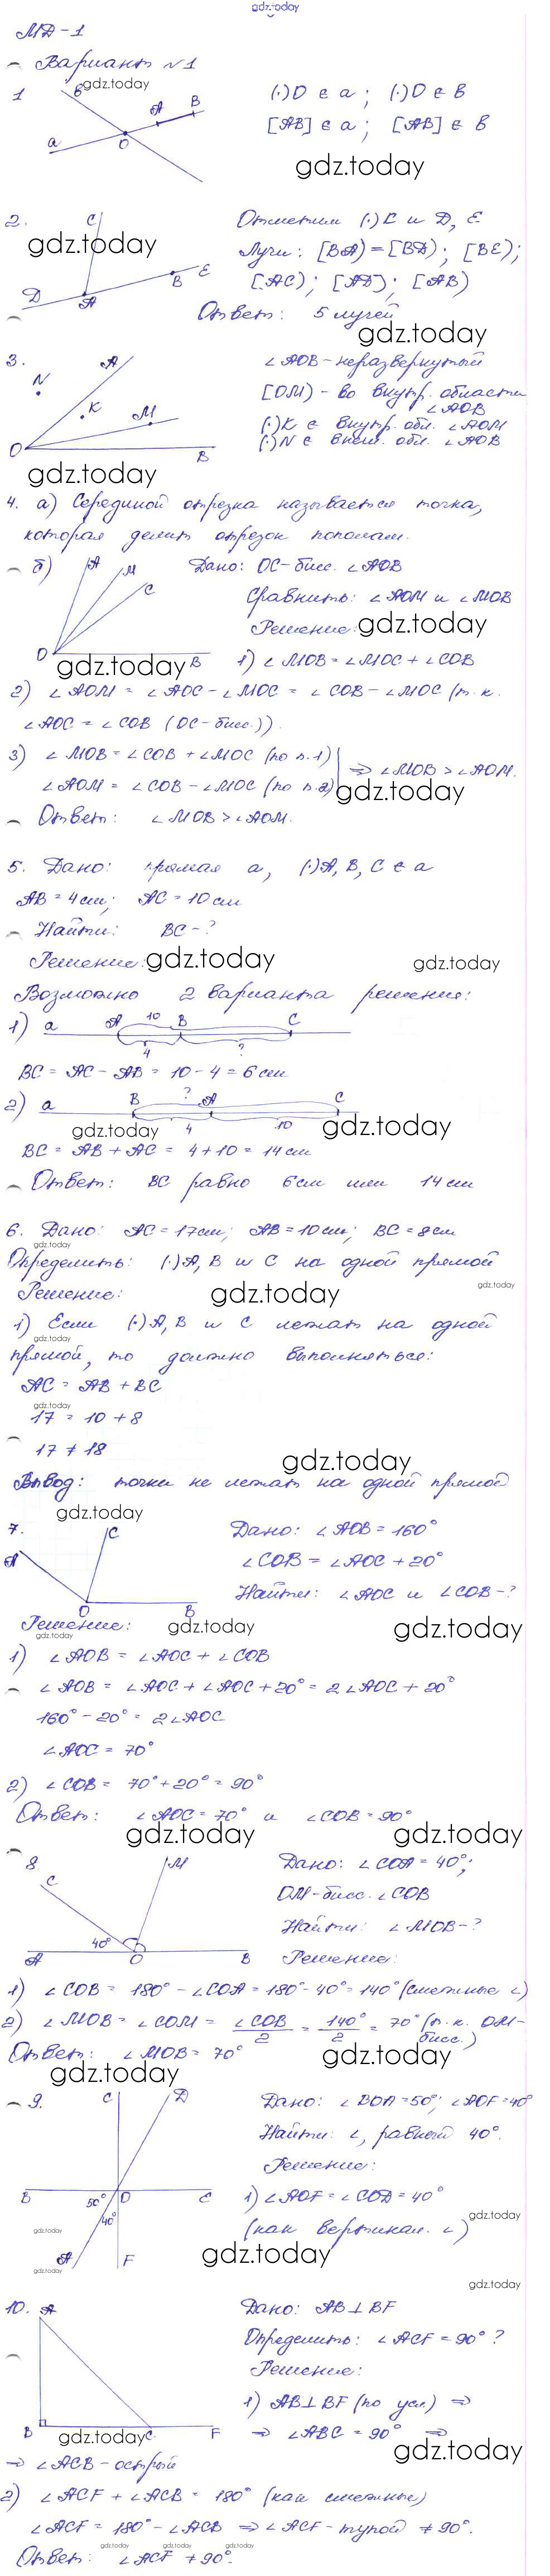 gdz.today
МД-1
Вариант N1
gdz.today
1
в
a
O
A
B
(·)O ∈ a ; (·)O ∈ в
[AB] ∈ a ; [AB] ∉ в
gdz.today
2.
C
D
A
B
E
gdz.today
Отметим (·) C и D, E
Лучи: [BA) = [BD); [BE);
[AC); [AD); [AB)
Ответ: 5 лучей
gdz.today
3.
N
A
K
M
O
B
∠AOB - неразвернутый
[OM) - во внутр. области
∠AOB
(·)K ∈ внутр. обл. ∠AOM
(·)N ∈ внеш. обл. ∠AOB
gdz.today
4. а) Серединой отрезка называется точка,
которая делит отрезок пополам.
б)
A
M
C
O
B
Дано: OC - бисс. ∠AOB
Сравнить: ∠AOM и ∠MOB
Решение:
gdz.today
gdz.today
1) ∠MOB = ∠MOC + ∠COB
2) ∠AOM = ∠AOC - ∠MOC = ∠COB - ∠MOC (т.к.
∠AOC = ∠COB (OC - бисс.)).
3) ∠MOB = ∠COB + ∠MOC (по п.1)
∠AOM = ∠COB - ∠MOC (по п.2)
⇒ ∠MOB > ∠AOM.
gdz.today
Ответ: ∠MOB > ∠AOM.
5. Дано: прямая a, (·)A, B, C ∈ a
AB = 4 см; AC = 10 см
Найти: BC - ?
Решение:
gdz.today
gdz.today
Возможно 2 варианта решения:
1) a A 10 B C
4 ?
BC = AC - AB = 10 - 4 = 6 см
2) a B ? A C
4 10
gdz.today
gdz.today
BC = AB + AC = 4 + 10 = 14 см
Ответ: BC равно 6 см или 14 см
6. Дано: AC = 17 см; AB = 10 см; BC = 8 см
gdz.today
Определить: (·)A, B и C на одной прямой
gdz.today
Решение:
gdz.today
1) Если (·)A, B и C лежат на одной
gdz.today
прямой, то должно выполняться:
AC = AB + BC
gdz.today
17 = 10 + 8
17 ≠ 18
gdz.today
Вывод: точки не лежат на одной прямой
gdz.today
7.
A
C
O
B
Дано: ∠AOB = 160°
∠COB = ∠AOC + 20°
Найти: ∠AOC и ∠COB - ?
Решение:
gdz.today
gdz.today
gdz.today
1) ∠AOB = ∠AOC + ∠COB
∠AOB = ∠AOC + ∠AOC + 20° = 2∠AOC + 20°
160° - 20° = 2∠AOC
∠AOC = 70°
2) ∠COB = 70° + 20° = 90°
Ответ: ∠AOC = 70° и ∠COB = 90°
gdz.today
gdz.today
8
C
M
40°
A
O
B
Дано: ∠COA = 40°;
OM - бисс. ∠COB
Найти: ∠MOB - ?
Решение:
1) ∠COB = 180° - ∠COA = 180° - 40° = 140° (смежные ∠)
2) ∠MOB = ∠COM = ∠COB/2 = 140°/2 = 70° (т.к. OM -
бисс.)
Ответ: ∠MOB = 70°
gdz.today
gdz.today
9.
C
D
B
50°
O
C
40°
A
F
Дано: ∠BOA = 50°; ∠AOF = 40°
Найти: ∠, равный 40°.
Решение:
1) ∠AOF = ∠COD = 40°
gdz.today
(как вертикал. ∠)
gdz.today
gdz.today
gdz.today
gdz.today
10.
A
B
C
F
gdz.today
Дано: AB ⊥ BF
Определить: ∠ACF = 90° ?
Решение:
1) AB ⊥ BF (по усл.) ⇒
⇒ ∠ABC = 90° ⇒
gdz.today
⇒ ∠ACB - острый
2) ∠ACF + ∠ACB = 180° (как смежные)
∠ACF = 180° - ∠ACB ⇒ ∠ACF - тупой ≠ 90°.
gdz.today
gdz.today
gdz.today
Ответ: ∠ACF ≠ 90°.